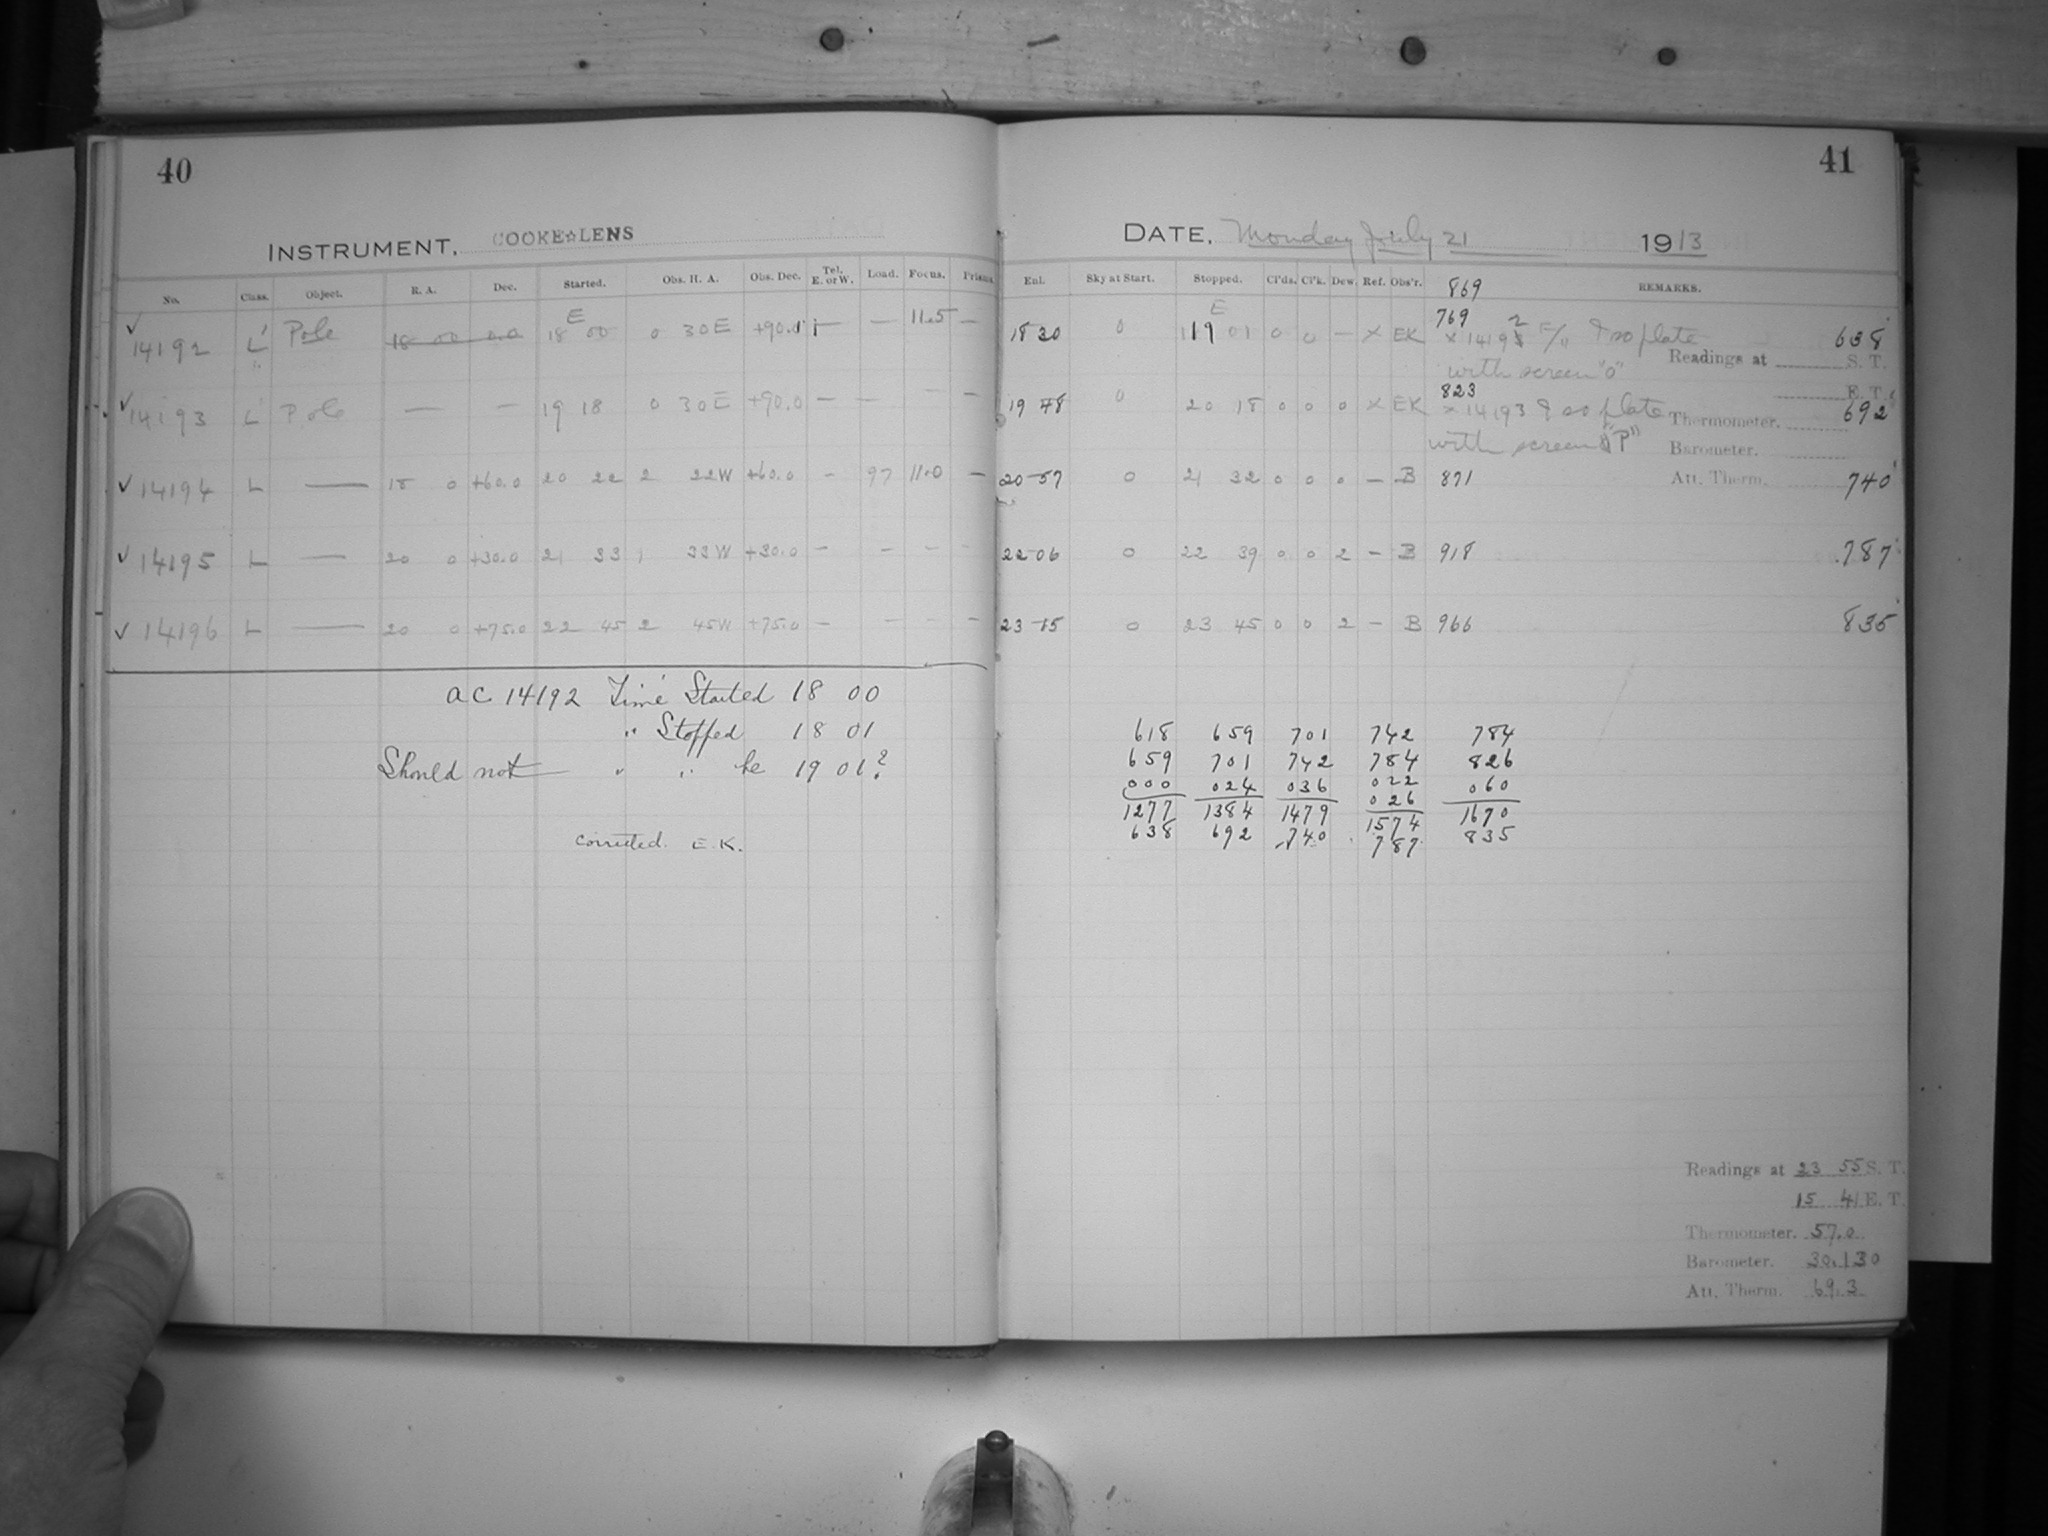 40
INSTRUMENT, COOKE☆LENS
No. Class. Object. R. A. Dec. Started. Obs. H. A. Obs. Dec. Tel. E. or W. Load. Focus. Prism.
E
✓ 14192 L Pole 18 00 0.0 18 00 0 30E +90.0 — — 11.5 —
✓ 14193 L Pole — — 19 18 0 30E +90.0 — — — —
✓ 14194 L — 18 0 +60.0 20 22 2 22W +60.0 - 97 11.0 —
✓ 14195 L — 20 0 +30.0 21 33 1 33W +30.0 — — — —
✓ 14196 L — 20 0 +75.0 22 45 2 45W +75.0 — — — —
AC 14192 Time Started 18 00
" Stopped 18 01
Should not " " be 19 01?
corrected. E.K.
41
DATE, Monday July 21 1913
Enl. Sky at Start. Stopped. Cl'ds. Cl'k. Dew. Ref. Obs'r. REMARKS.
869
E
769
18 30 0 19 01 0 0 — × EK × 14192 & so plate 638
with screen "o"
Readings at S. T.
E. T.
823
19 48 0 20 18 0 0 0 × EK × 14193 & so plate 692
with screen "P"
Thermometer.
Barometer.
Att. Therm.
20 57 0 21 32 0 0 0 — B 871 740
22 06 0 22 39 0 0 2 — B 918 787
23 15 0 23 45 0 0 2 — B 966 835
618 659 701 742 784
659 701 742 784 826
000 024 036 022 060
026
1277 1384 1479 1574 1670
638 692 740 787 835
Readings at 23 55 S. T.
15 41 E. T.
Thermometer. 57.0
Barometer. 30.130
Att. Therm. 69.3